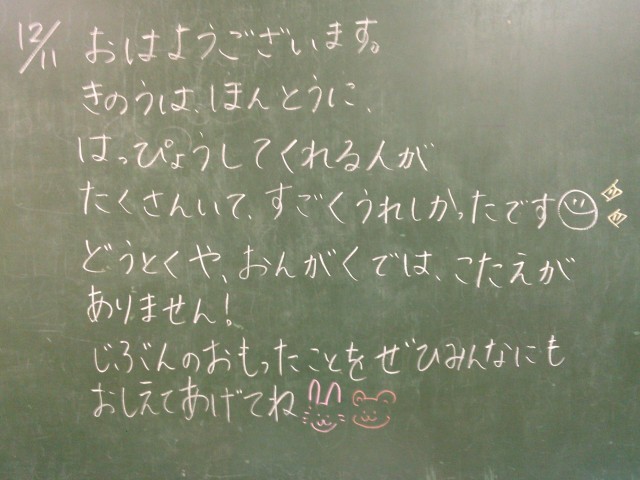 12/11 おはようございます。
きのうは、ほんとうに、
はっぴょうしてくれる人が
たくさんいて、すごくうれしかったです
どうとくや、おんがくでは、こたえが
ありません!
じぶんのおもったことをぜひみんなにも
おしえてあげてね